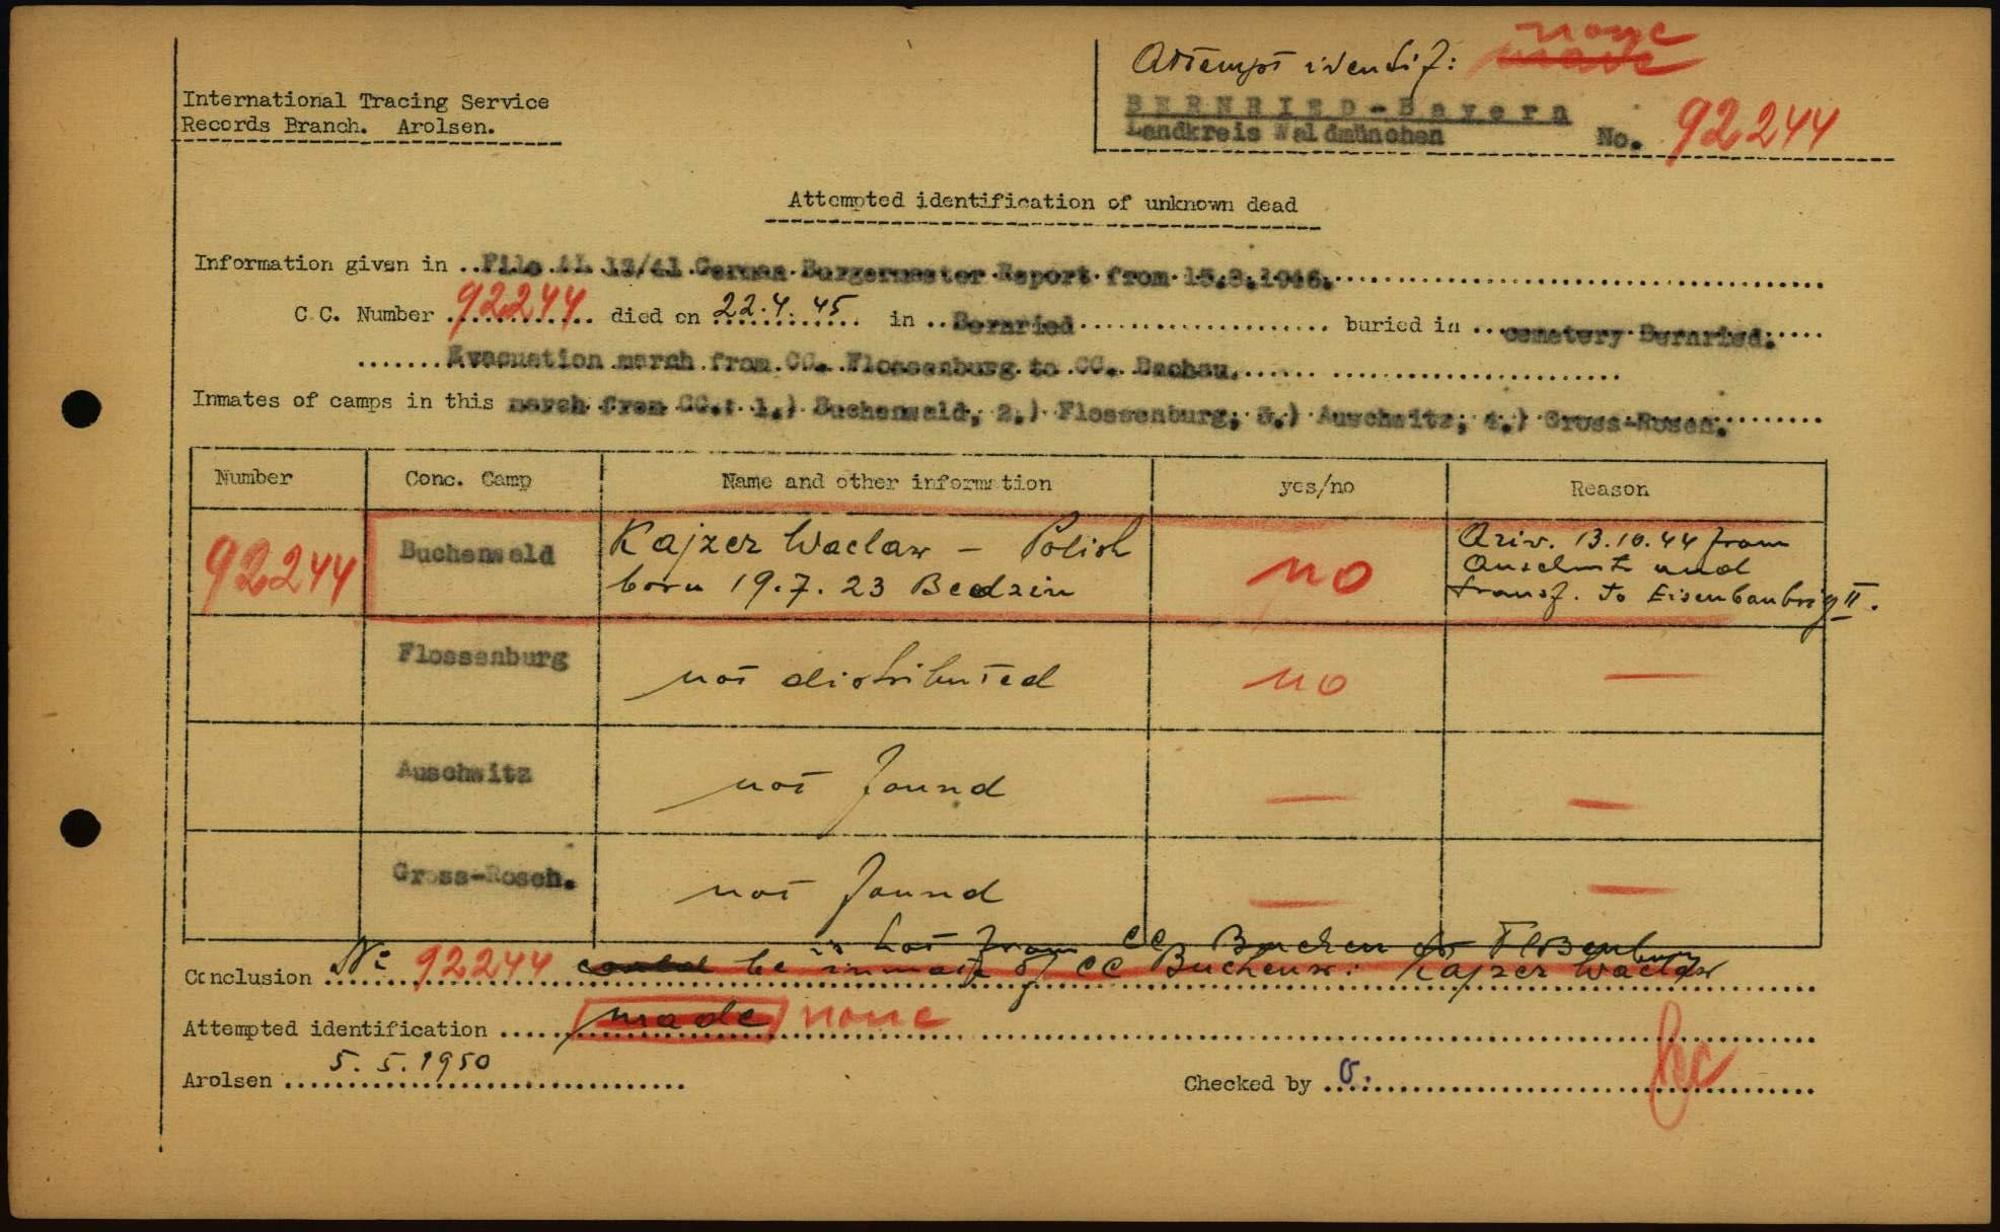 Attempt identif: none
made
International Tracing Service
Records Branch. Arolsen.
BERNRIED-Bayern
Landkreis Waldmünchen No. 92244
Attempted identification of unknown dead
Information given in ..File AL 13/41 German Burgermaster Report from 15.8.1946.
C.C. Number 92244 died on 22.4.45 in ..Bernried buried in ...cemetery Bernried.
Evacuation march from CC. Flossenburg to CC. Dachau.
Inmates of camps in this march from CC.: 1.) Buchenwald, 2.) Flossenburg; 3.) Auschwitz; 4.) Gross-Rosen.
Number Conc. Camp Name and other information yes/no Reason
92244 Buchenwald Kajzer Waclaw - Polish
born 19.7.23 Bedzin no Ariv. 13.10.44 from
Auschwitz and
transf. to Eisenbaubrig II.
Flossenburg not distributed no —
Auschwitz not found — —
Gross-Rosen. not found — —
is not from CC Buchen to Floßenburg
Conclusion No 92244 could be inmate of CC Buchenw: Kajzer Waclaw
Attempted identification made none
Arolsen 5.5.1950
Checked by